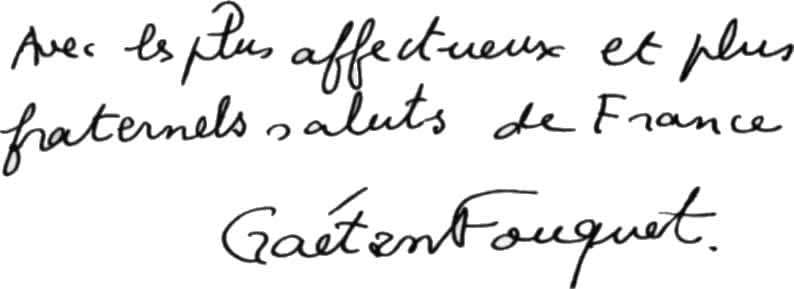 Avec les plus affectueux et plus
fraternels saluts de France
Gaétan Fouquet.